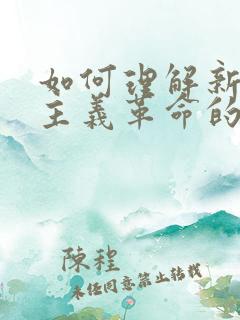 如何理解新
主义革命的
陳程
未经同意禁止转载